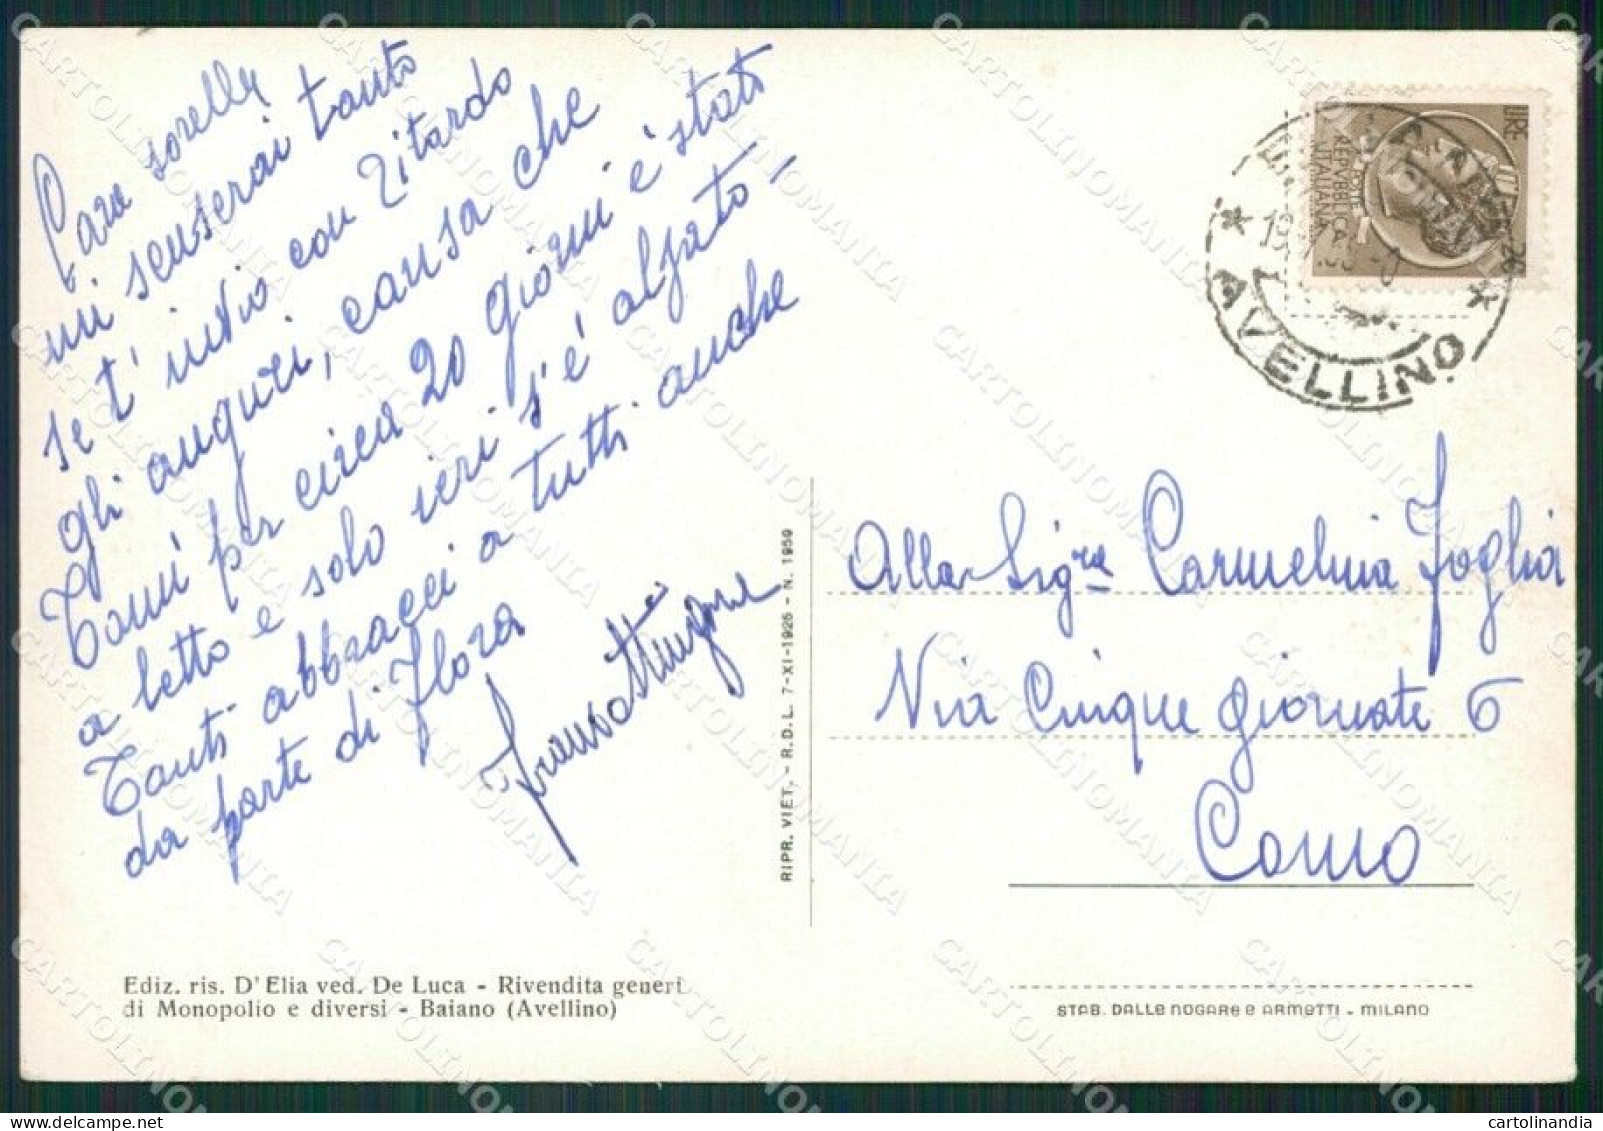 Cara sorella
mi scuserai tanto
se t'invio con ritardo
gli auguri, causa che
Tomì per circa 20 giorni è stato
a letto e solo ieri s'è alzato -
Tanti abbracci a tutti anche
da parte di Flora
LIRE
REPVBBLICA
ITALIANA
POSTE
AVELLINO
Alla Sig.ra Carmelina Foglia
Via Cinque giornate 6
Como
RIPR. VIET. - R.D.L. 7-XI-1925 - N. 1959
Ediz. ris. D'Elia ved. De Luca - Rivendita generi
di Monopolio e diversi - Baiano (Avellino)
STAB. DALLE NOGARE E ARMETTI - MILANO
CARTOLINOMANIA
cartolinandia